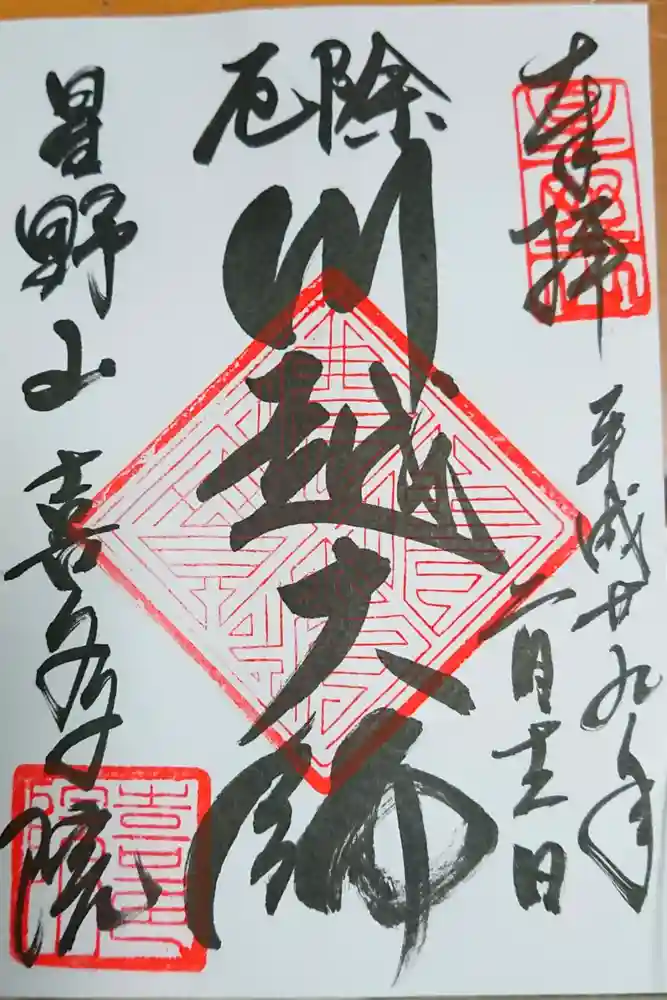 奉拝
平成廿九年
二月 日
厄除
川越大師
星野山 喜多院